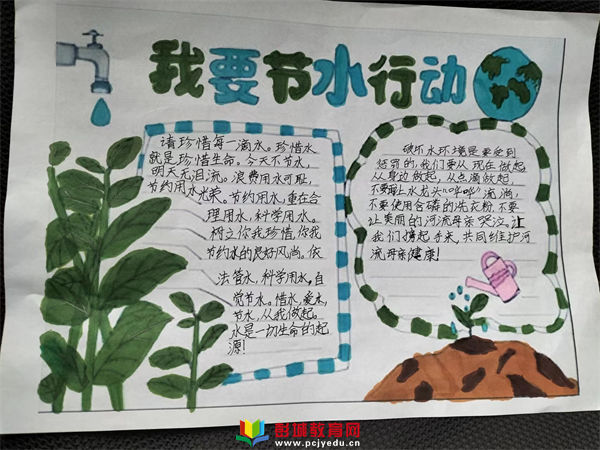 我要节水行动
请珍惜每一滴水。珍惜水
就是珍惜生命。今天不节水，
明天无泪流。浪费用水可耻，
节约用水光荣。节约用水，重在合
理用水，科学用水。
树立你我珍惜，你我
节约水的良好风尚。依
法管水，科学用水，自
觉节水。惜水，爱水，
节水，从我做起。
水是一切生命的起
源！
破坏水环境是要受到
惩罚的，我们要从现在做起，
从身边做起，从点滴做起，
不要让水龙头“哗哗”流淌，
不要使用含磷的洗衣粉，不要
让美丽的河流母亲哭泣。让
我们携起手来，共同维护河
流母亲健康！
彭城教育网
www.pcjyedu.cn